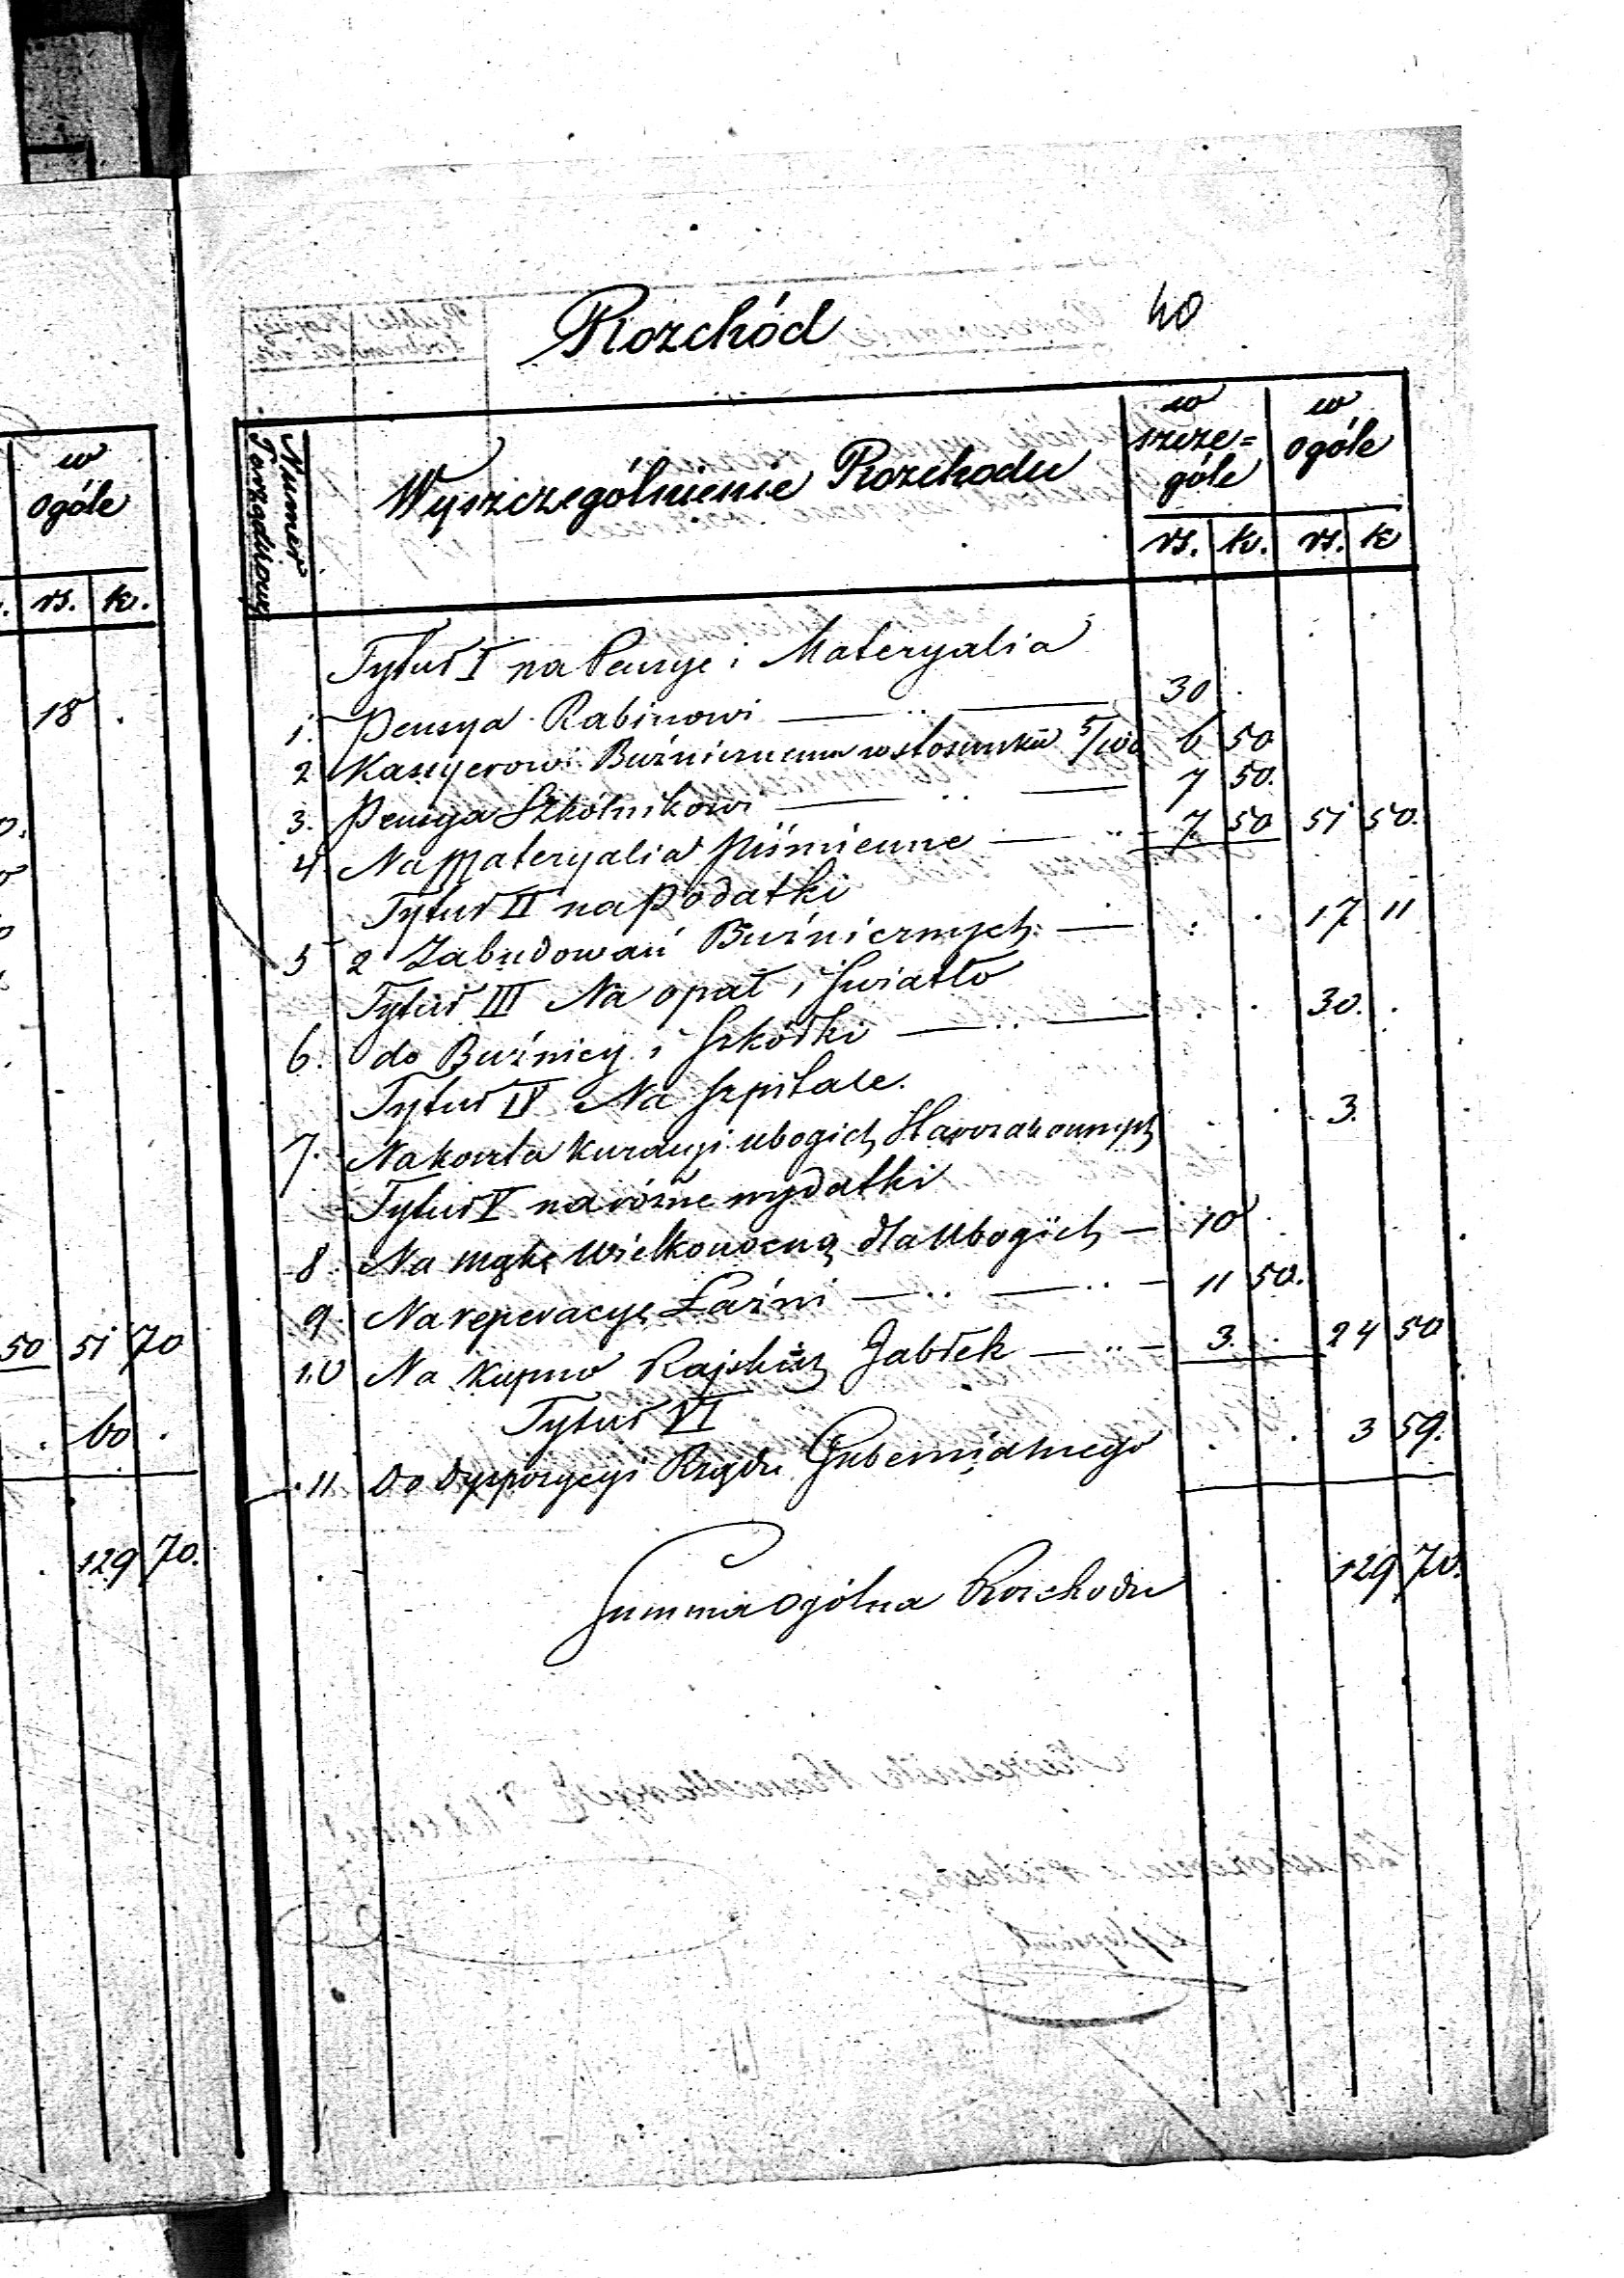 w
ogóle
rs. k.
18 .
50 51 70
. 60 .
. 129 70.
Rozchód
40
Numer Porządkowy
Wyszczególnienie Rozchodu
w szcze=
góle
w
ogóle
rs. k. rs. k
Tytuł I na Pensye i Materyalia
1. Pensya Rabinowi — .. — 30 .
2 Kasyerowi Buźnicznemu w stosunku 5/100 6 50
3. Pensya Szkólnikowi — .. — 7 50.
4 Na Materyalia piśmienne — .. — 7. 50 51 50.
Tytuł II na podatki
5 z Zabudowań Buźnicznych. — . . 17 11
Tytuł III Na opał i Swiatło
6. do Buźnicy i Szkółki — .. — . . 30. .
Tytuł IV Na Szpitale.
7. Na koszta kuracyi ubogich Starozakonnych . . 3.
Tytuł V na różne wydatki
8 Na mąkę Wielkonocną dla Ubogich — 10 .
9 Na reperacyę Łaźni — .. — .. — 11 50.
10 Na kupno Rajskich Jabłek — .. — 3. . 24 50
Tytuł VI
11 Do dyspozycyi Rządu Gubernialnego . . 3 59.
Summa ogólna Rozchodu . . 129 70.